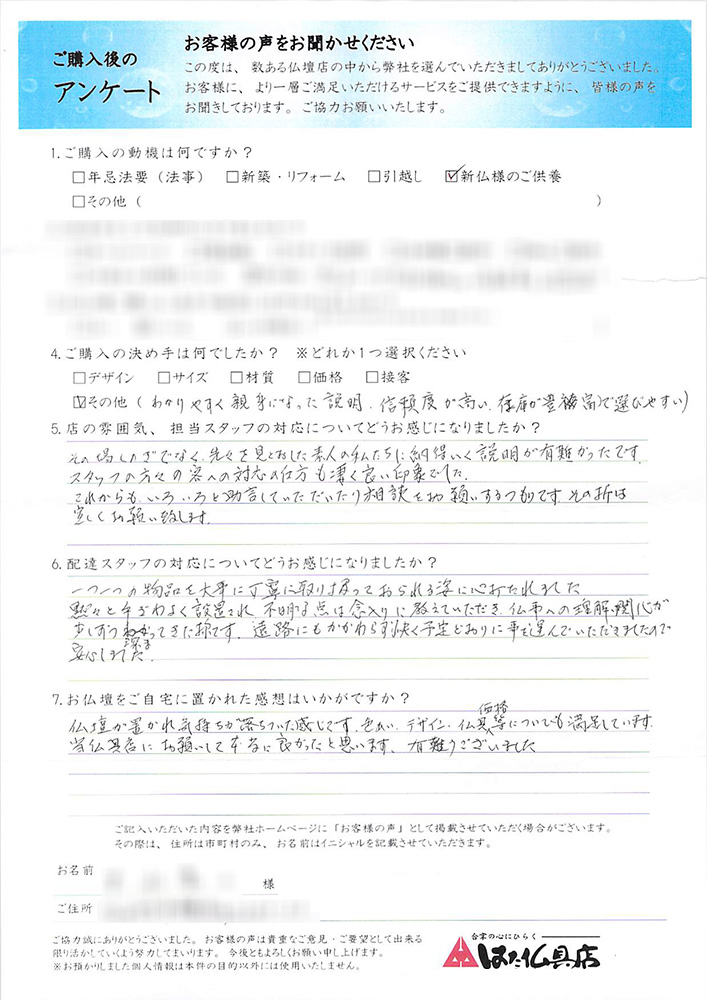 ご購入後の
アンケート
お客様の声をお聞かせください
この度は、数ある仏壇店の中から弊社を選んでいただきましてありがとうございました。
お客様に、より一層ご満足いただけるサービスをご提供できますように、皆様の声を
お聞きしております。ご協力お願いいたします。
1.ご購入の動機は何ですか？
□年忌法要（法事） □新築・リフォーム □引越し ☑新仏様のご供養
□その他（ ）
4.ご購入の決め手は何でしたか？ ※どれか1つ選択ください
□デザイン □サイズ □材質 □価格 □接客
☑その他（わかりやすく親身になった説明、信頼度が高い、在庫が豊富で選びやすい）
5.店の雰囲気、担当スタッフの対応についてどうお感じになりましたか？
その場しのぎでなく、先々を見とおした素人の私たちに納得いく説明が有難かったです。
スタッフの方々の客への対応の仕方も凄く良い印象でした。
これからも、いろいろと助言していただいたり相談をお願いするつもりです。その折は
宜しくお願い致します。
6.配達スタッフの対応についてどうお感じになりましたか？
一つ一つの物品を大事に丁寧に取り扱っておられる姿に心打たれました
黙々と手ぎわよく設置され、不明な点は念入りに教えていただき、仏事への理解・関心が
少しずつ深まってきた様です。遠路にもかかわらず快く予定どおりに事を運んでいただきましたので
安心しました。
7.お仏壇をご自宅に置かれた感想はいかがですか？
仏壇が置かれ気持ちが落ちついた感じです。色あい、デザイン、仏具、価格等についても満足しています。
当仏具店にお願いして本当に良かったと思います、有難うございました
ご記入いただいた内容を弊社ホームページに「お客様の声」として掲載させていただく場合がございます。
その際は、住所は市町村のみ、お名前はイニシャルを記載させていただきます。
お名前 様
ご住所
ご協力誠にありがとうございました。お客様の声は貴重なご意見・ご要望として出来る
限り活かしていくよう努力してまいります。今後ともよろしくお願い申し上げます。
※お預かりしました個人情報は本件の目的以外には使用いたしません。
合掌の心にひらく
はた仏具店